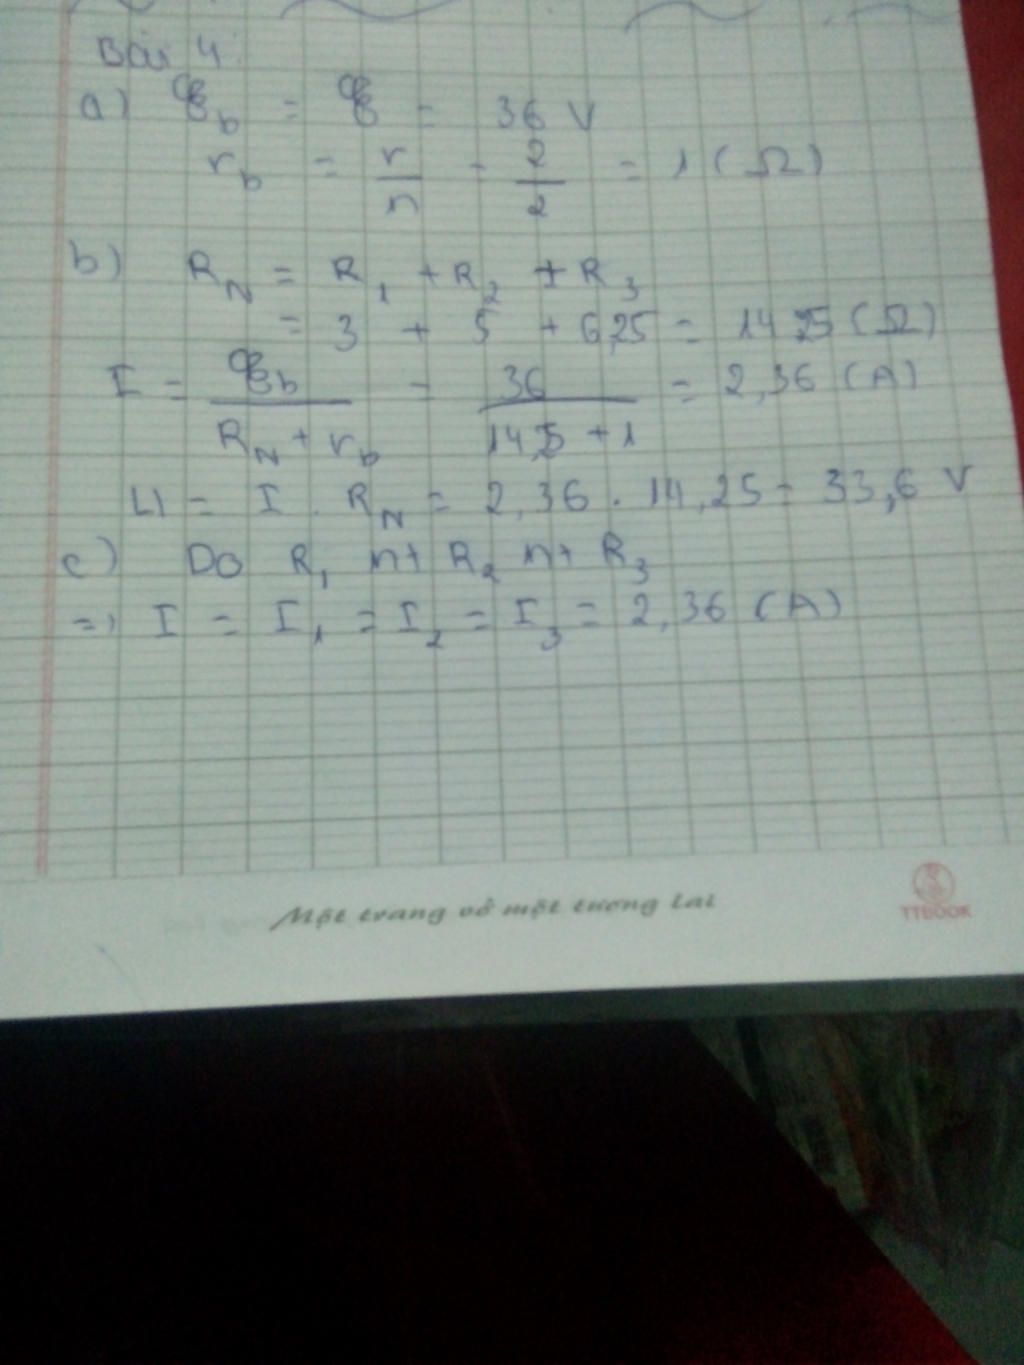 Bài 4
a) ℰb = ℰ = 36 V
rb = r/n = 2/2 = 1 (Ω)
b) RN = R1 + R2 + R3
= 3 + 5 + 6,25 = 14,25 (Ω)
I = ℰb/(RN + rb) = 36/(14,25 + 1) = 2,36 (A)
U = I . RN = 2,36 . 14,25 = 33,6 V
c) Do R1 nt R2 nt R3
=> I = I1 = I2 = I3 = 2,36 (A)
Một trang vở một tương lai
TTBOOK